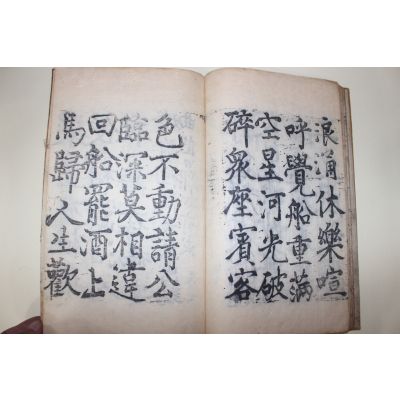 浪湧休樂喧
呼覺船重滿
空星河光破
碎衆座賓客
色不動請公
臨深莫相違
回船罷酒上
馬歸人生歡